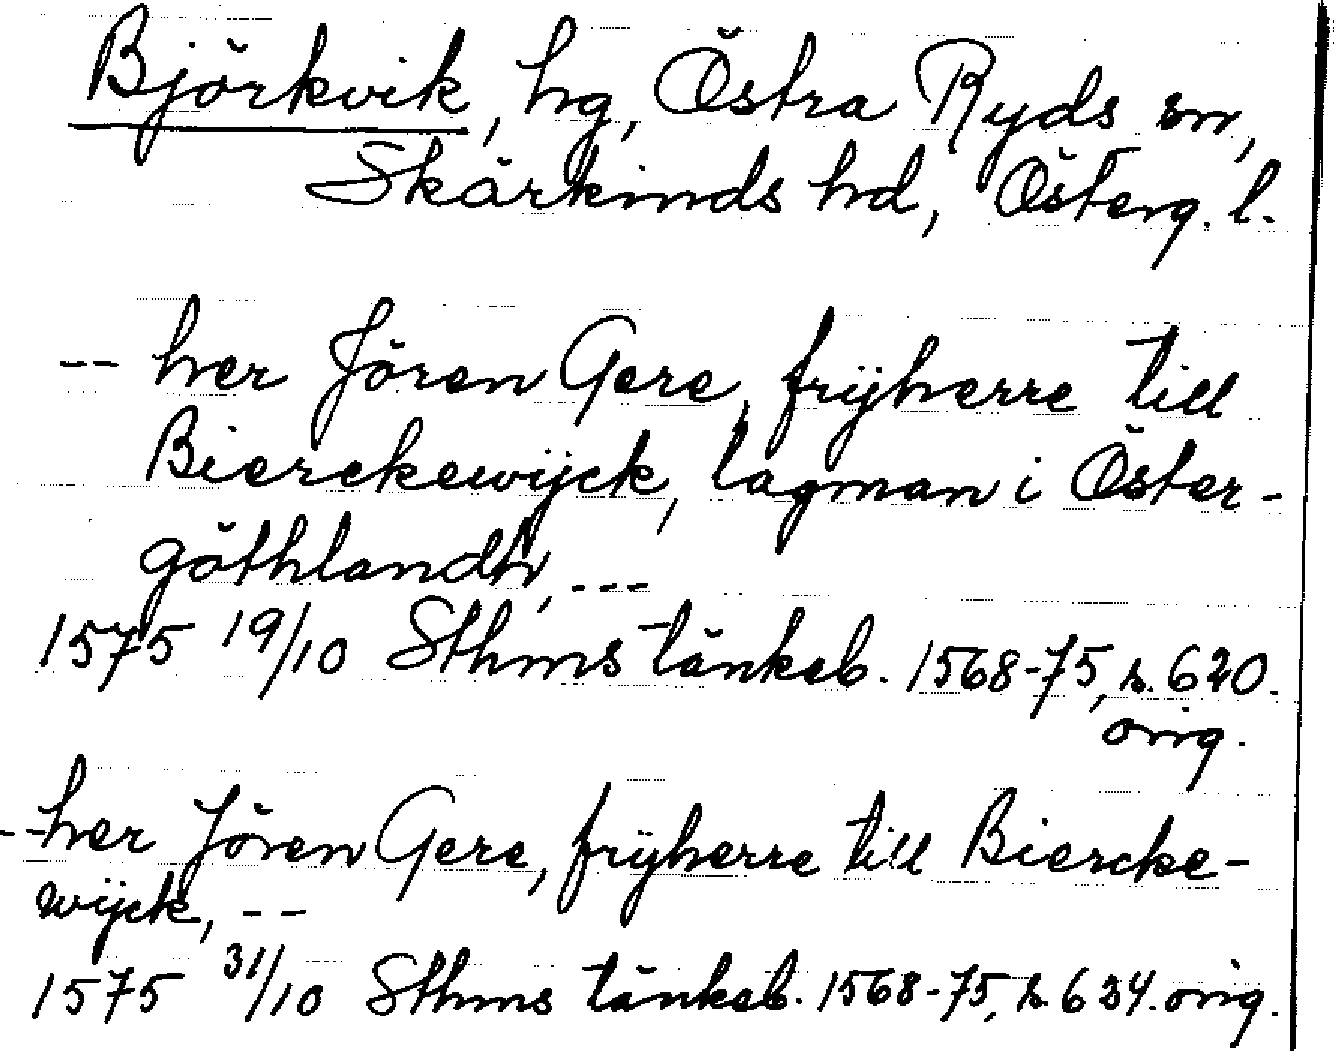 Björkvik, hg, Östra Ryds sn,
Skärkinds hd, Österg. l.
-- her Jören Gere, frijherre till
Bierckewijck, lagman i Öster-
göthlandh, ---
1575 19/10 Sthms tänkeb. 1568-75, s. 620.
orig.
-- her Jören Gere, frijherre till Biercke-
wijck, --
1575 31/10 Sthms tänkeb. 1568-75, s. 634. orig.